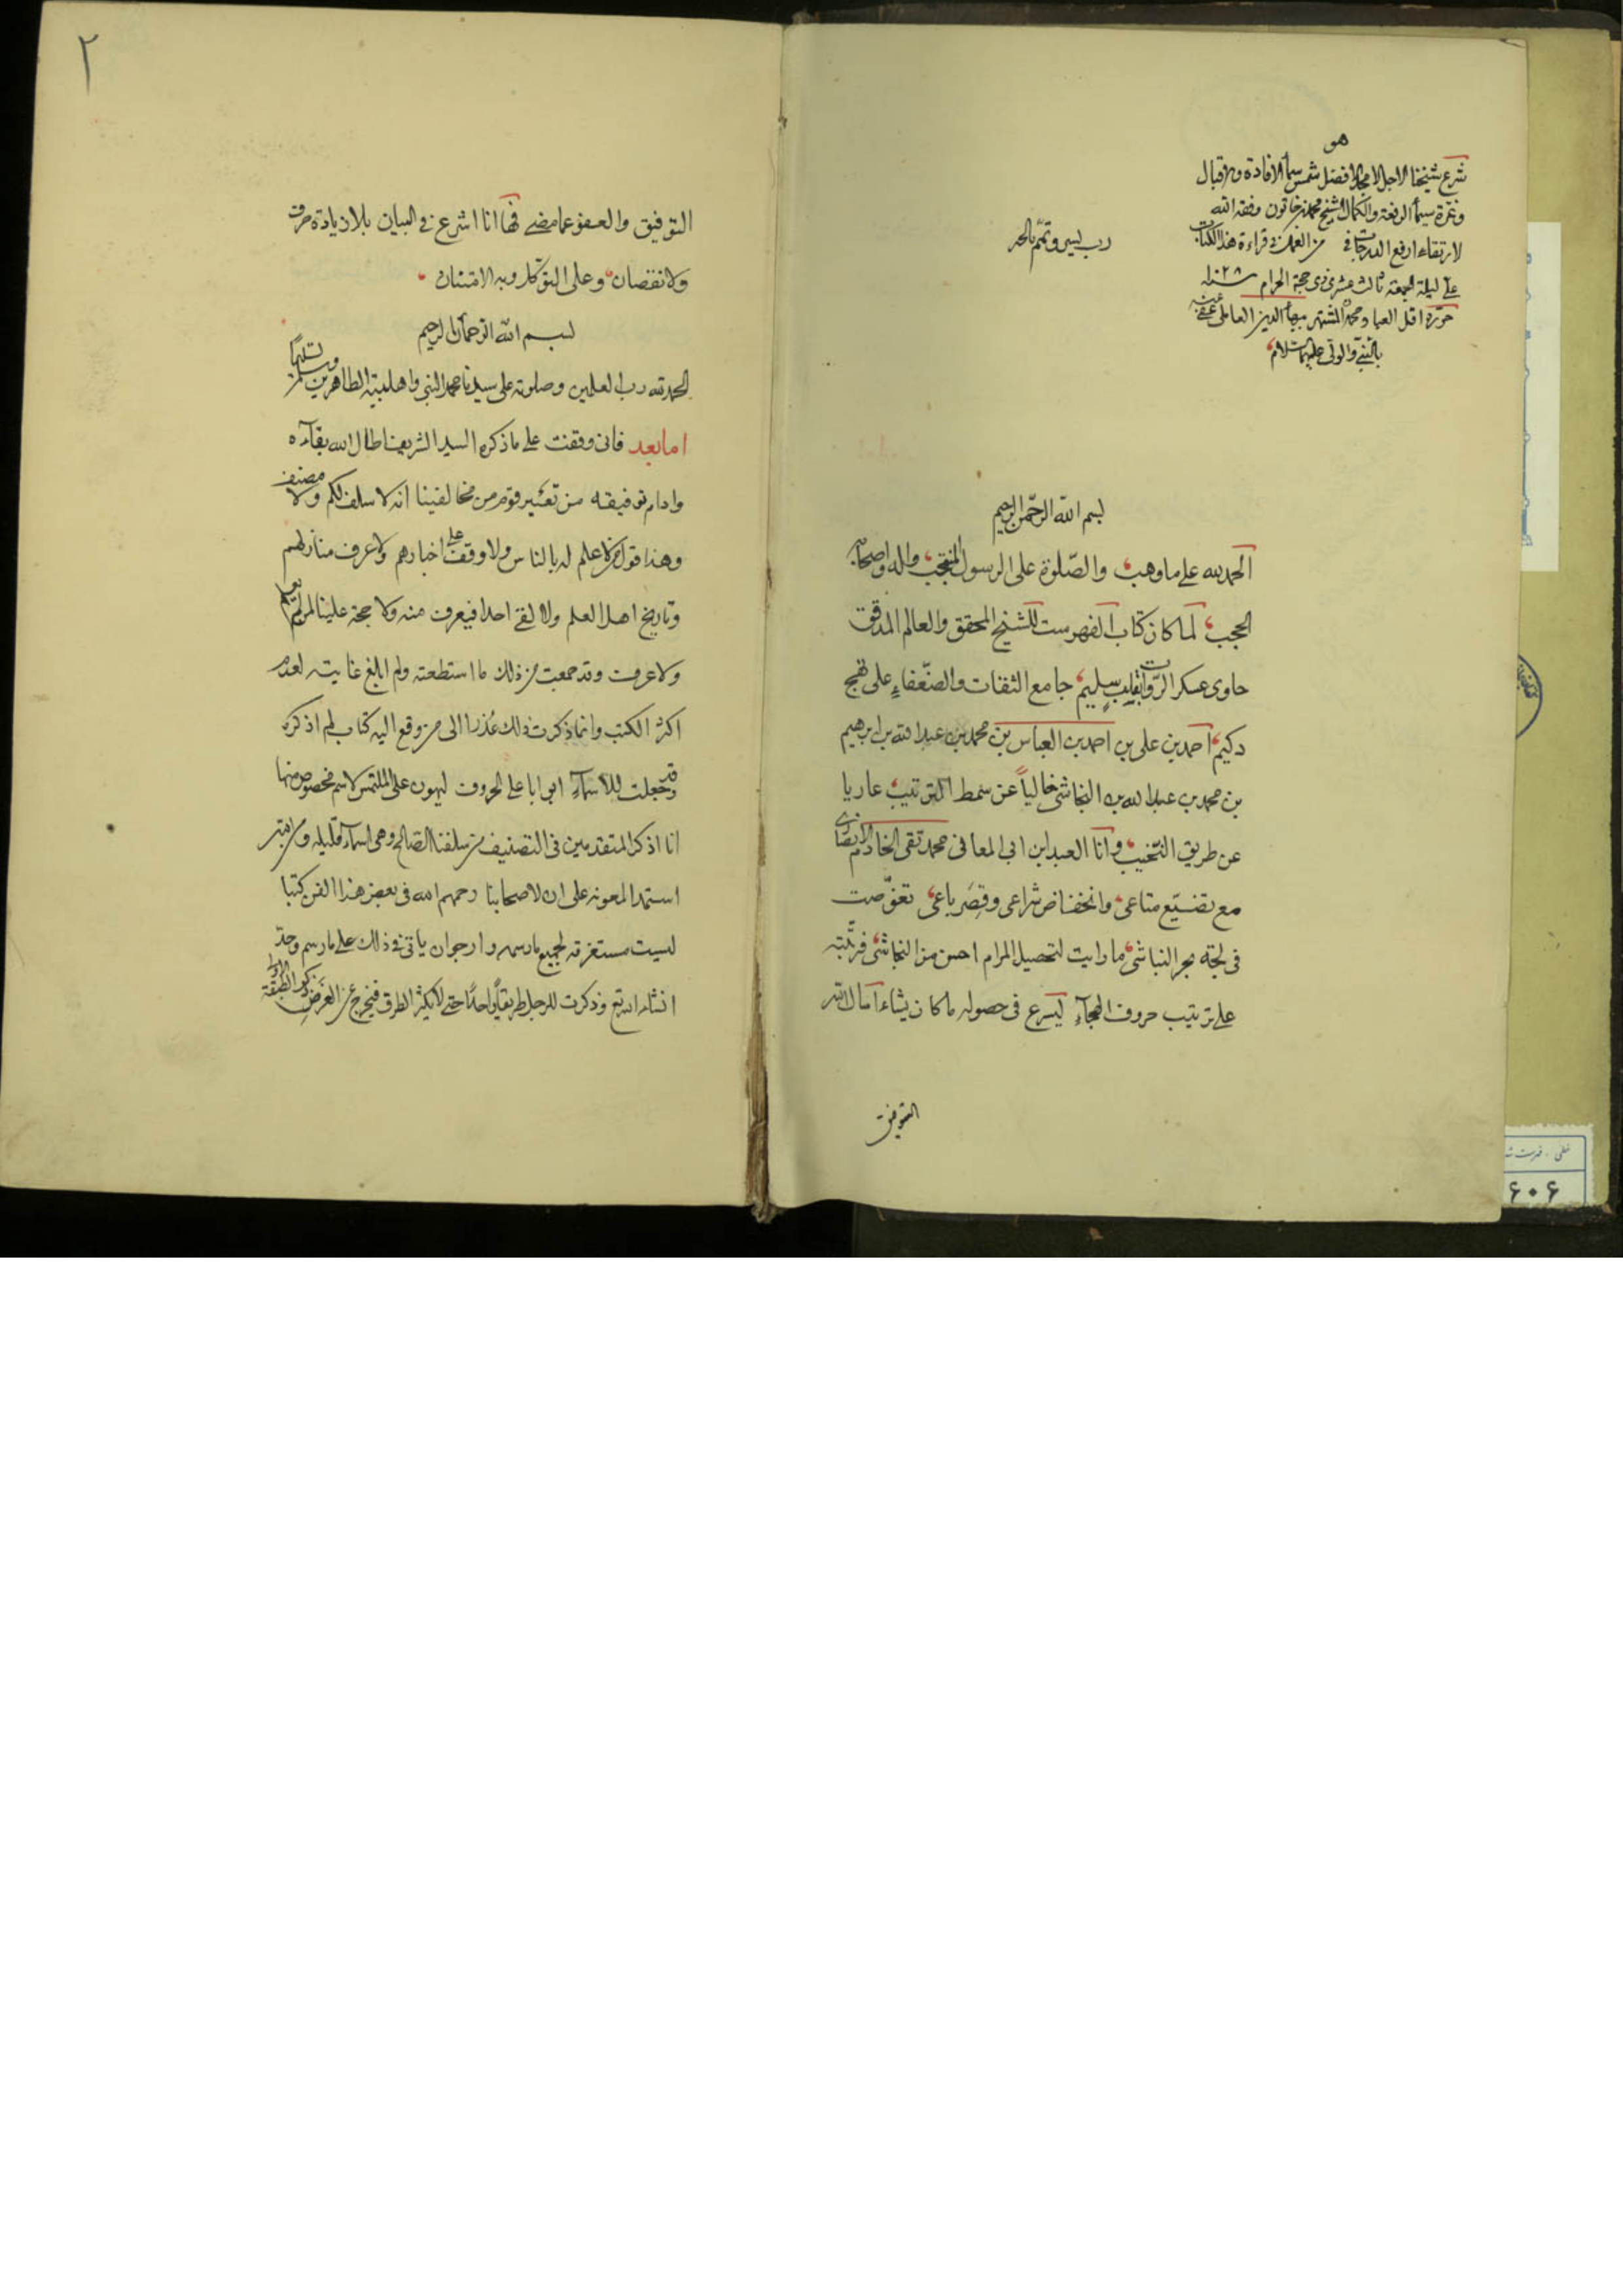 هو
شرع شيخنا الاجل الامجد الافضل شمس سماء الافادة والاقبال
وغرة سيماء الرفعة والكمال الشيخ محمد بن خاتون وفقه الله
لارتقاء ارفع الدرجات في قراءة هذا الكتاب
على ليلة الجمعة ثالث عشر ذي حجة الحرام سنة ١٠٢٨
حرره اقل العباد محمد المشتهر ببهاء الدين العاملي عفي عنه
بالنبي والولي عليهما السلام
رب يسر وتمم بالخير
بسم الله الرحمن الرحيم
الحمد لله على ما وهب والصلوة على الرسول المنتجب واله واصحابه
الحجب لما كان كتاب الفهرست للشيخ المحقق والعالم المدقق
حاوى عسكر الروات بقلب سليم جامع الثقات والضعفاء على نهج
دكيم احمد بن على بن احمد بن العباس بن محمد بن عبد الله بن ابرهيم
بن محمد بن عبد الله بن النجاشى خالياً عن سمط الترتيب عاريا
عن طريق النخيب وانا العبد ابن ابى المعافى محمد تقى الخادم الانصارى
مع تضيّع متاعى وانخفاض شراعى وقصر باعى تغوّصت
فى لجة بحر النباشى ما رايت لتحصيل المرام احسن من النجاشى فرتّبته
على ترتيب حروف الهجاء ليسرع فى حصوله ما كان يشاء اسأل الله
التوفيق
٢
التوفيق والعفو عما مضى فها انا اشرع فى البيان بلا زيادة حرف
ولا نقصان وعلى الله التوكل وبه الامتنان
بسم الله الرحمن الرحيم
الحمد لله رب العلمين وصلوته على سيدنا محمد النبى واهل بيته الطاهرين وسلم تسليماً
اما بعد فانى وقفت على ما ذكره السيد الشريف اطال الله بقاءه
وادام توفيقه من تعيير قوم من مخالفينا انه لا سلف لكم ولا مصنف
وهذا قول من لا علم له بالناس ولا وقف على اخبارهم ولا عرف منازلهم
وتاريخ اهل العلم ولا لقى احدا فيعرف منه ولا حجة علينا لمن لم يعلم
ولا عرف وقد جمعت من ذلك ما استطعته ولم ابلغ غايته لعدم
اكثر الكتب وانما ذكرت ذلك عذرا الى من وقع اليه كتاب لم اذكره
وقد جعلت للاسماء ابوابا على الحروف ليهون على الملتمس لاسم مخصوص منها
انا اذكر المتقدمين فى التصنيف من سلفنا الصالح وهى اسماء قليلة ومن الله
استمد المعونة على ان لاصحابنا رحمهم الله فى بعض هذا الفن كتبا
ليست مستغرقة لجميع ما رسمه وارجو ان ياتى فى ذلك على ما رسم وحدّ
انشاء الله تع وذكرت للرجل طريقاً واحداً حتى لا يكثر الطرق فيخرج عن الغرض ذكر الطبقة الاولى
٦٠٦